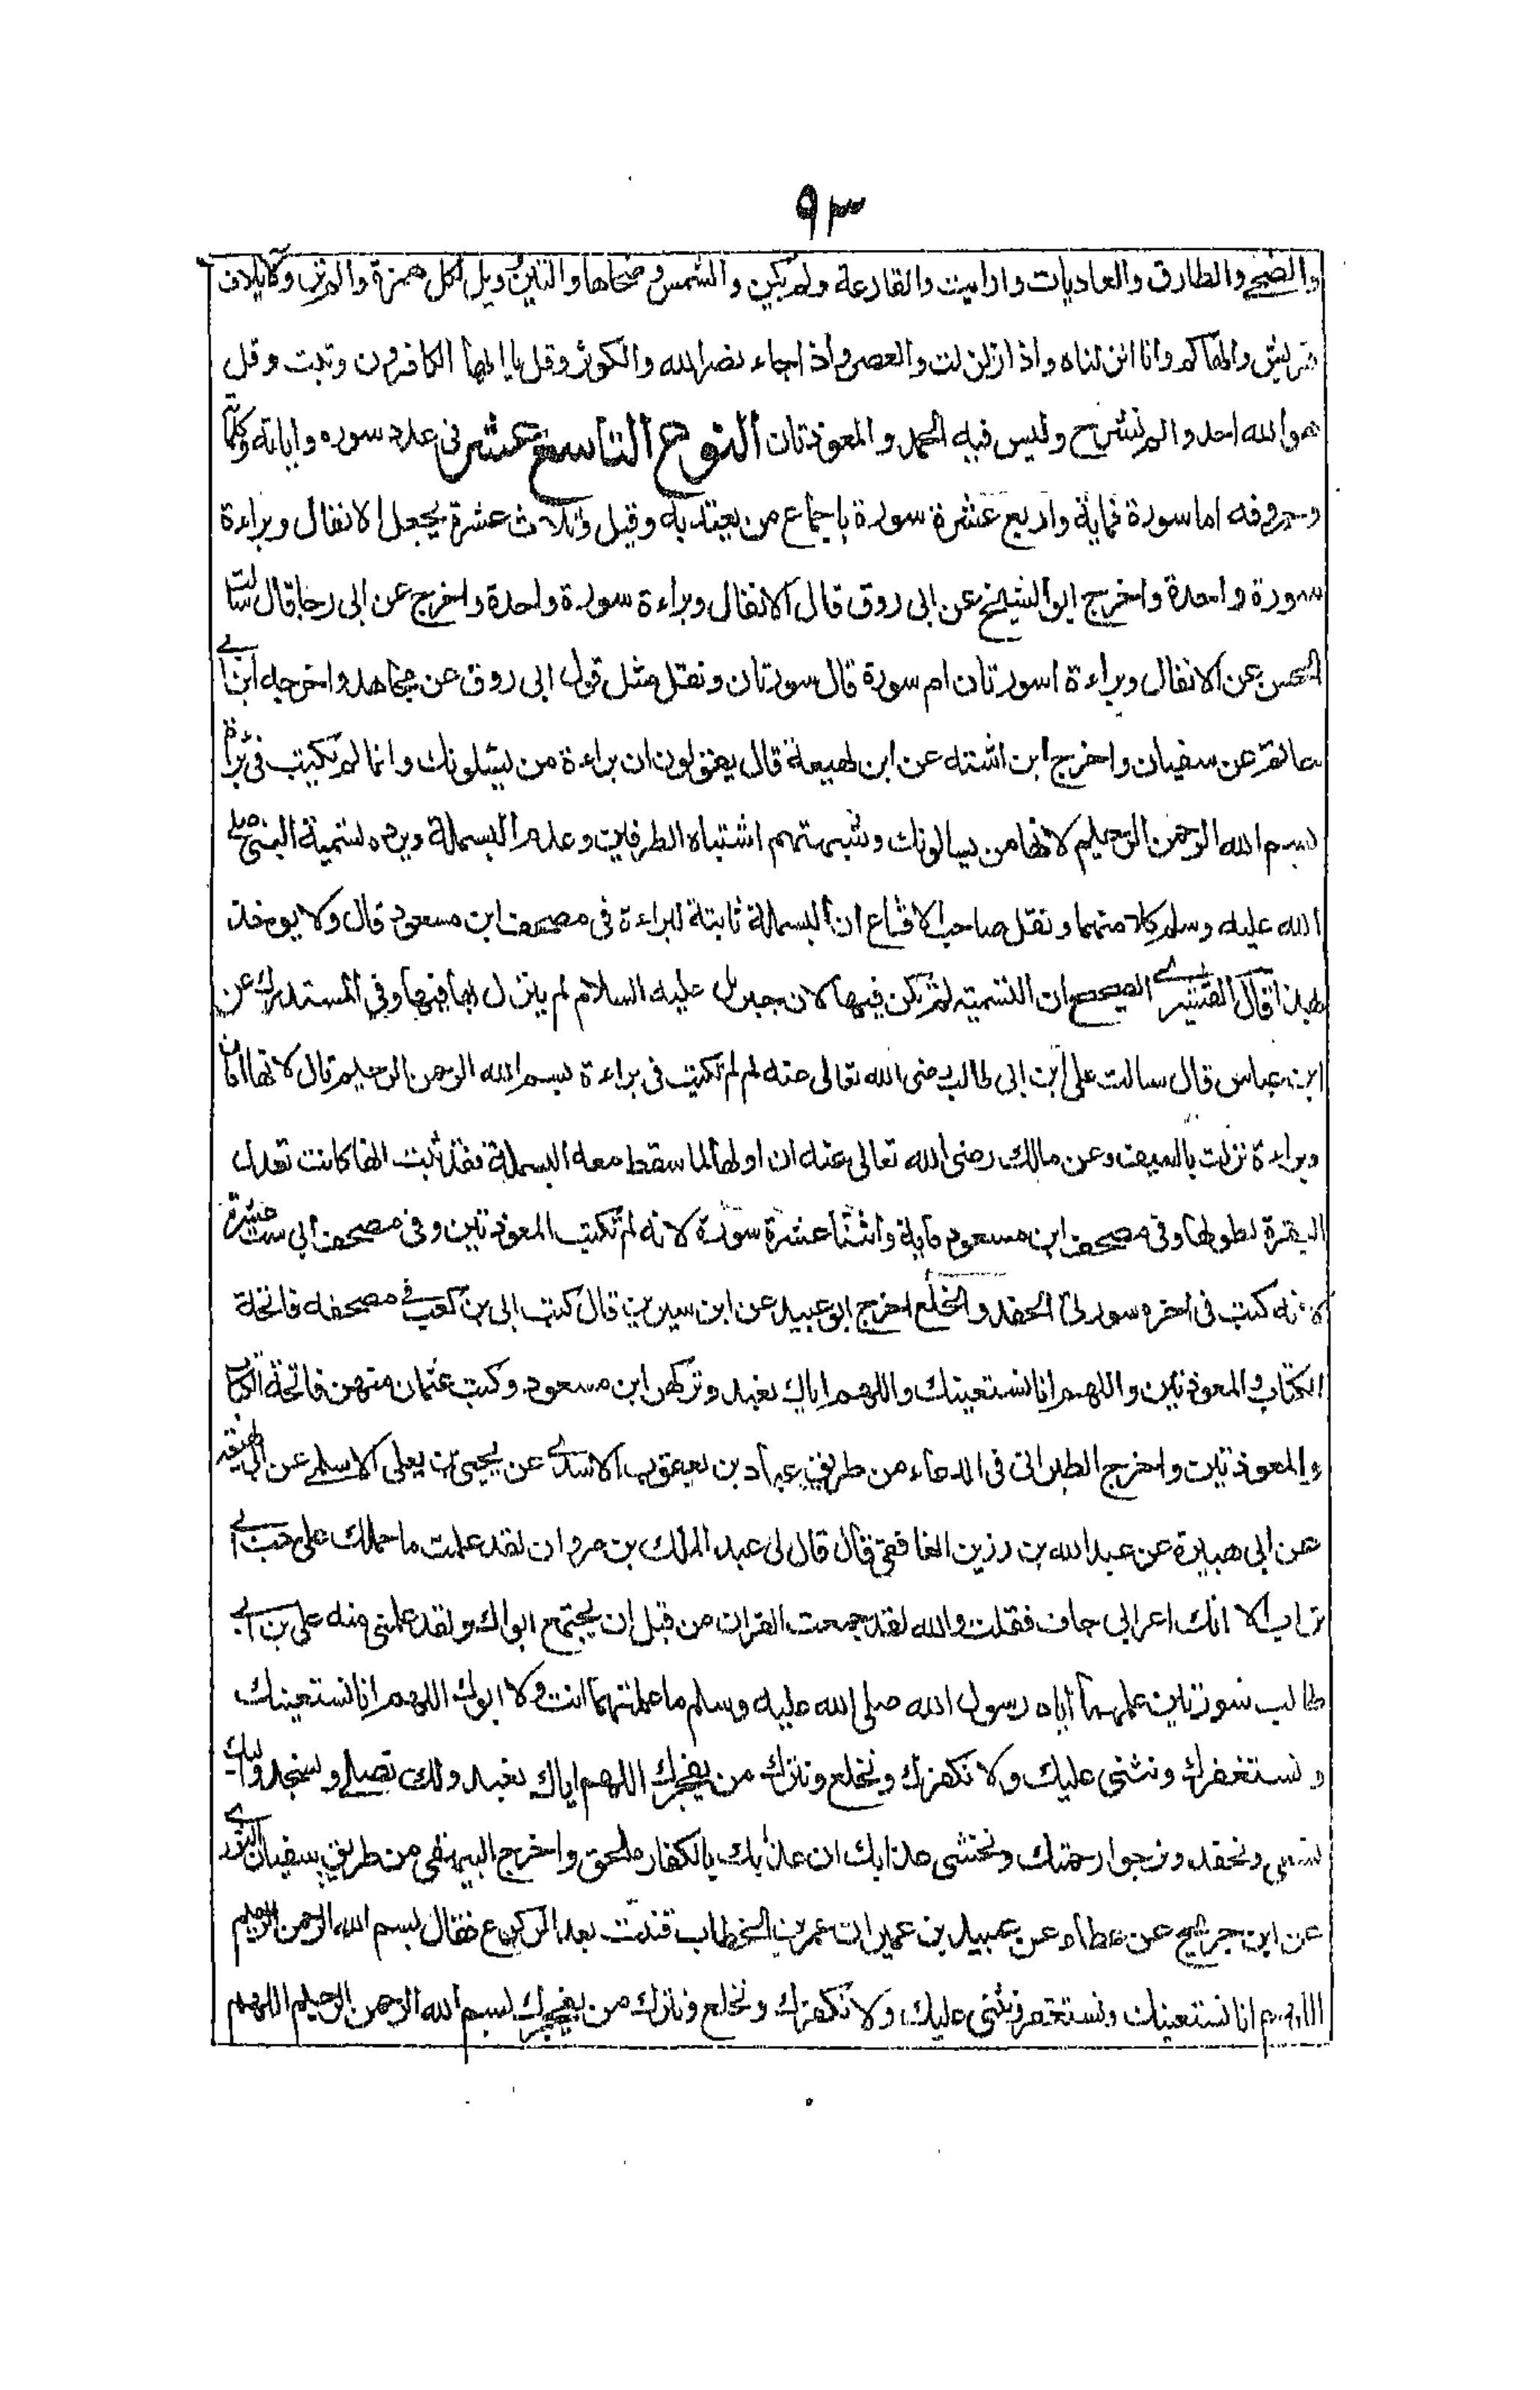 ٩٣
والضحى والطارق والعاديات وارايت والقارعة ولم يكن والشمس وضحاها والتين ويل لكل همزة والم تر ولايلاف
قريش والهاكم وانا انزلناه واذا زلزلت والعصر واذا جاء نصر الله والكوثر وقل يا ايها الكافرون وتبت وقل
هو الله احد والم نشرح وليس فيه الحمد والمعوذتان النوع التاسع عشر فى عدد سوره واياته وكلماته
وحروفه اما سورة فماية واربع عشرة سورة باجماع من يعتد به وقيل وثلاث عشرة بجعل الانفال وبراءة
سورة واحدة واخرج ابو الشيخ عن ابى روق قال الانفال وبراءة سورة واحدة واخرج عن ابى رجا قال سالت
الحسن عن الانفال وبراءة اسورتان ام سورة قال سورتان ونقل مثل قول ابى روق عن مجاهد واخرجه ابن ابى
حاتم عن سفيان واخرج ابن اشته عن ابن لهيعة قال يقولون ان براءة من يسئلونك وانما لم تكتب فى براءة
بسم الله الرحمن الرحيم لانها من يسالونك وشبهتهم اشتباه الطرفين وعدم البسملة ويرده تسمية النبى صلى
الله عليه وسلم كلا منهما ونقل صاحب الاقناع ان البسملة ثابتة لبراءة فى مصحف ابن مسعود قال ولا يوخذ
بهذا قال القشيرى الصحيح ان التسمية لم تكن فيها لان جبريل عليه السلام لم ينزل بها فيها وفى المستدرك عن
ابن عباس قال سالت على ابن ابى طالب رضى الله تعالى عنه لم لم تكتب فى براءة بسم الله الرحمن الرحيم قال لانها امان
وبراءة نزلت بالسيف وعن مالك رضى الله تعالى عنه ان اولها لما سقط معه البسملة فقد ثبت انها كانت تعدل
البقرة لطولها وفى مصحف ابن مسعود ماية واثنتا عشرة سورة لانه لم تكتب المعوذتين وفى مصحف ابى ست عشرة
لانه كتب فى اخره سورتى الحفد والخلع اخرج ابو عبيد عن ابن سيرين قال كتب ابى بن كعب فى مصحفه فاتحة
الكتاب والمعوذتين واللهم انا نستعينك واللهم اياك نعبد وتركهن ابن مسعود وكتب عثمان منهن فاتحة الكتاب
والمعوذتين واخرج الطبرانى فى الدعاء من طريق عباد بن يعقوب الاسدى عن يحيى بن يعلى الاسلمى عن ابن لهيعة
عن ابى هبيرة عن عبد الله بن رزين الغافقى قال قال لى عبد الملك بن مروان لقد علمت ما حملك على حب ابى
تراب الا انك اعرابى جاف فقلت والله لقد جمعت القران من قبل ان يجتمع ابواك ولقد علمنى منه على بن ابى
طالب سورتين علمهما اياه رسول الله صلى الله عليه وسلم ما علمتهما انت ولا ابوك اللهم انا نستعينك
ونستغفرك ونثنى عليك ولا نكفرك ونخلع ونترك من يفجرك اللهم اياك نعبد ولك نصلى ونسجد واليك
نسعى ونحفد ونرجوا رحمتك ونخشى عذابك ان عذابك بالكفار ملحق واخرج البيهقى من طريق سفيان الثورى
عن ابن جريج عن عطاء عن عبيد بن عمير ان عمر بن الخطاب قنت بعد الركوع فقال بسم الله الرحمن الرحيم
اللهم انا نستعينك ونستغفر ونثنى عليك ولا نكفرك ونخلع ونترك من يفجرك بسم الله الرحمن الرحيم اللهم